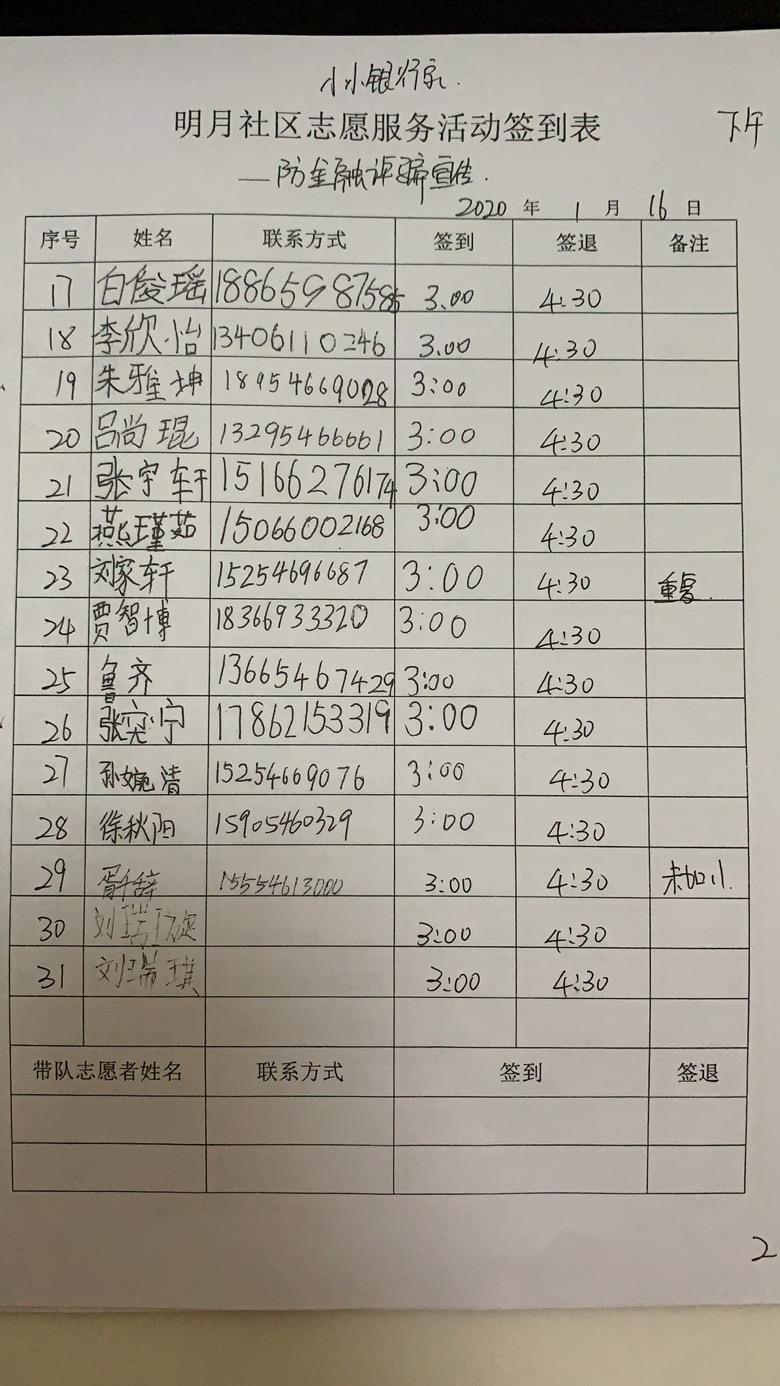 小小银行家.
明月社区志愿服务活动签到表 下午
——防金融诈骗宣传.
2020 年 1 月 16 日
序号 姓名 联系方式 签到 签退 备注
17 白俊瑶 18865987585 3.00 4:30
18 李欣怡 13406110246 3.00 4:30
19 朱雅坤 18954669028 3:00 4:30
20 吕尚琨 13295466661 3:00 4:30
21 张宇轩 15166276174 3:00 4:30
22 燕瑾茹 15066002168 3:00 4:30
23 刘家轩 15254696687 3:00 4:30 重复.
24 贾智博 18366933320 3:00 4:30
25 鲁齐 13665467429 3:00 4:30
26 张奕宁 17862153319 3:00 4:30
27 孙婉清 15254669076 3:00 4:30
28 徐秋阳 15905460329 3:00 4:30
29 15554613000 3:00 4:30 未加入.
30 刘瑞 3:00 4:30
31 刘瑞琪 3:00 4:30
带队志愿者姓名 联系方式 签到 签退
2